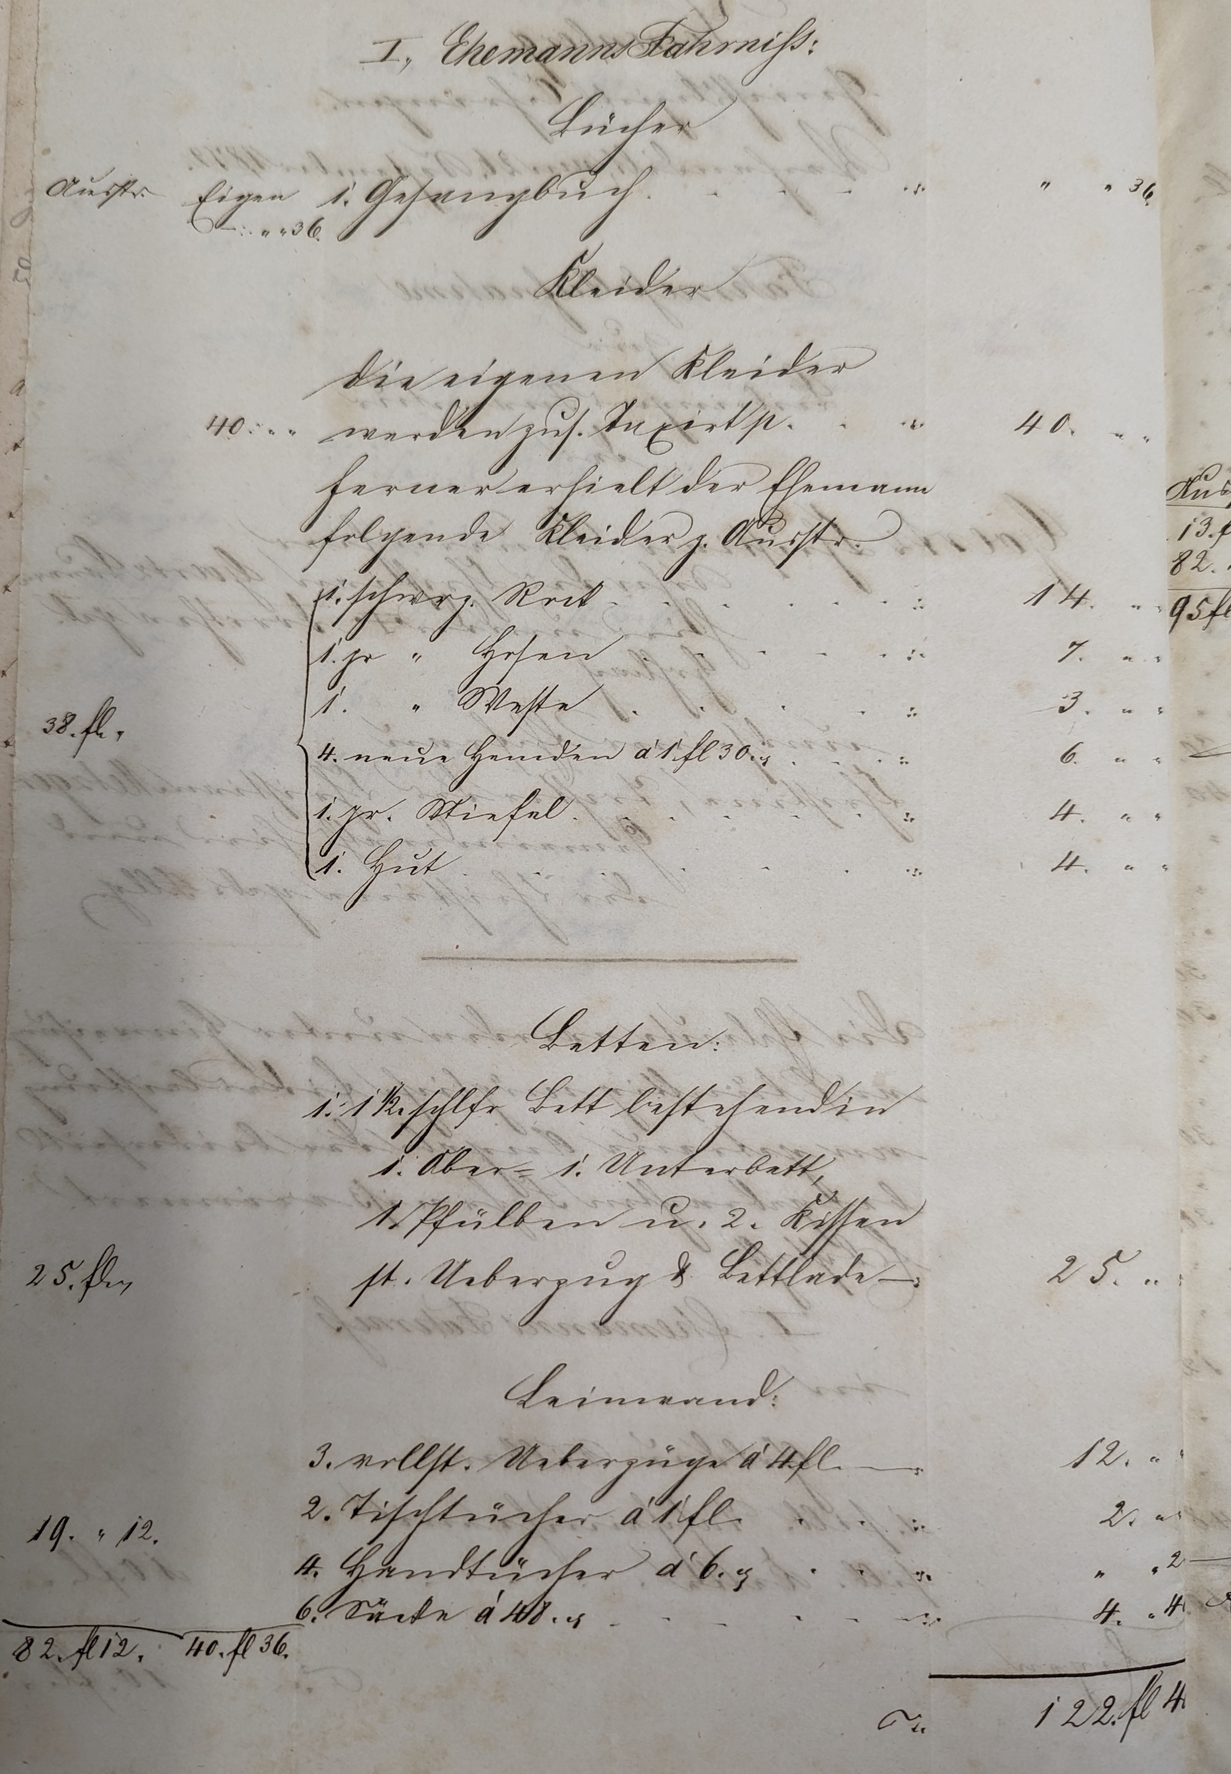 I, Ehemanns Fahrniß:
Bücher
Ausstr. Eigen 1. Gesangbuch. . . . : " " 36.
—: " " 36.
Kleider
Die eigenen Kleider
40. " " werden zus. Taxirt p. . . : 40. " "
ferner erhielt der Ehemann
folgende Kleider z. Ausstr.
1. schwrz. Rock . . . . . : 14. " "
1. pr " Hosen . . . . . : 7. " "
1. " Weste . . . . . : 3. " "
38. fl. " 4. neue Hemden á 1 fl 30. x . . . : 6. " "
1. pr. Stiefel . . . . . : 4. " "
1. Hut . . . . . : 4. " "
Betten:
1. 1 1/2. schlfr Bett bestehend in
1. Ober= 1. Unterbett,
1. Pfülben u. 2. Kissen
25. fl. " st. Ueberzug & Bettlade —: 25. "
Leinwand:
3. vollst. Ueberzüge á 4 fl. —: 12. "
2. Tischtücher á 1 fl. . . : 2. "
19. " 12. 4. Handtücher á 6. x . . : " " 2
6. Säcke á 48. x . . . . : 4. " 4
82. fl 12. 40. fl 36.
122. fl 4
Aus
13. f
82.
95 fl